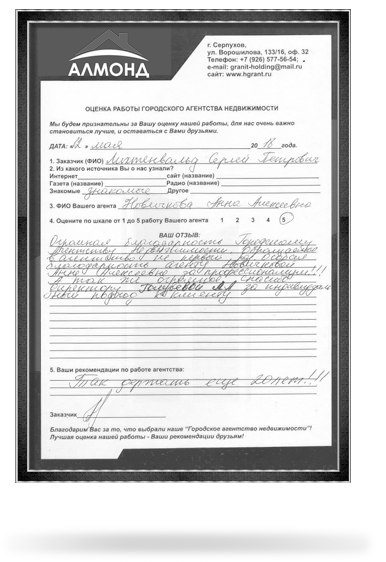 АЛМОНД
г. Серпухов,
ул. Ворошилова, 133/16, оф. 32
Телефон: +7 (926) 577-56-54;
e-mail: granit-holding@mail.ru
сайт: www.hgrant.ru
ОЦЕНКА РАБОТЫ ГОРОДСКОГО АГЕНТСТВА НЕДВИЖИМОСТИ
Мы будем признательны за Вашу оценку нашей работы, для нас очень важно
становиться лучше, и оставаться с Вами друзьями.
ДАТА: «22» мая 2018 года.
1. Заказчик (ФИО) Лихтенвальд Сергей Петрович
2. Из какого источника Вы о нас узнали?
Интернет сайт (название)
Газета (название) Радио (название)
Знакомые знакомого Другое
3. ФИО Вашего агента Новичкова Анна Алексеевна
4. Оцените по шкале от 1 до 5 работу Вашего агента 1 2 3 4 5
ВАШ ОТЗЫВ:
Огромная благодарность Городскому
Агентству Недвижимости. Обращаемся
в агентство не первый раз. Особая
благодарность агенту Новичковой
Анне Алексеевне за профессионализм!!!
А так же огромное спасибо
Директору за индивидуаль
ный подход к клиенту
5. Ваши рекомендации по работе агентства:
Так держать еще 20 лет!!!
Заказчик
Благодарим Вас за то, что выбрали наше "Городское агентство недвижимости"!
Лучшая оценка нашей работы - Ваши рекомендации друзьям!